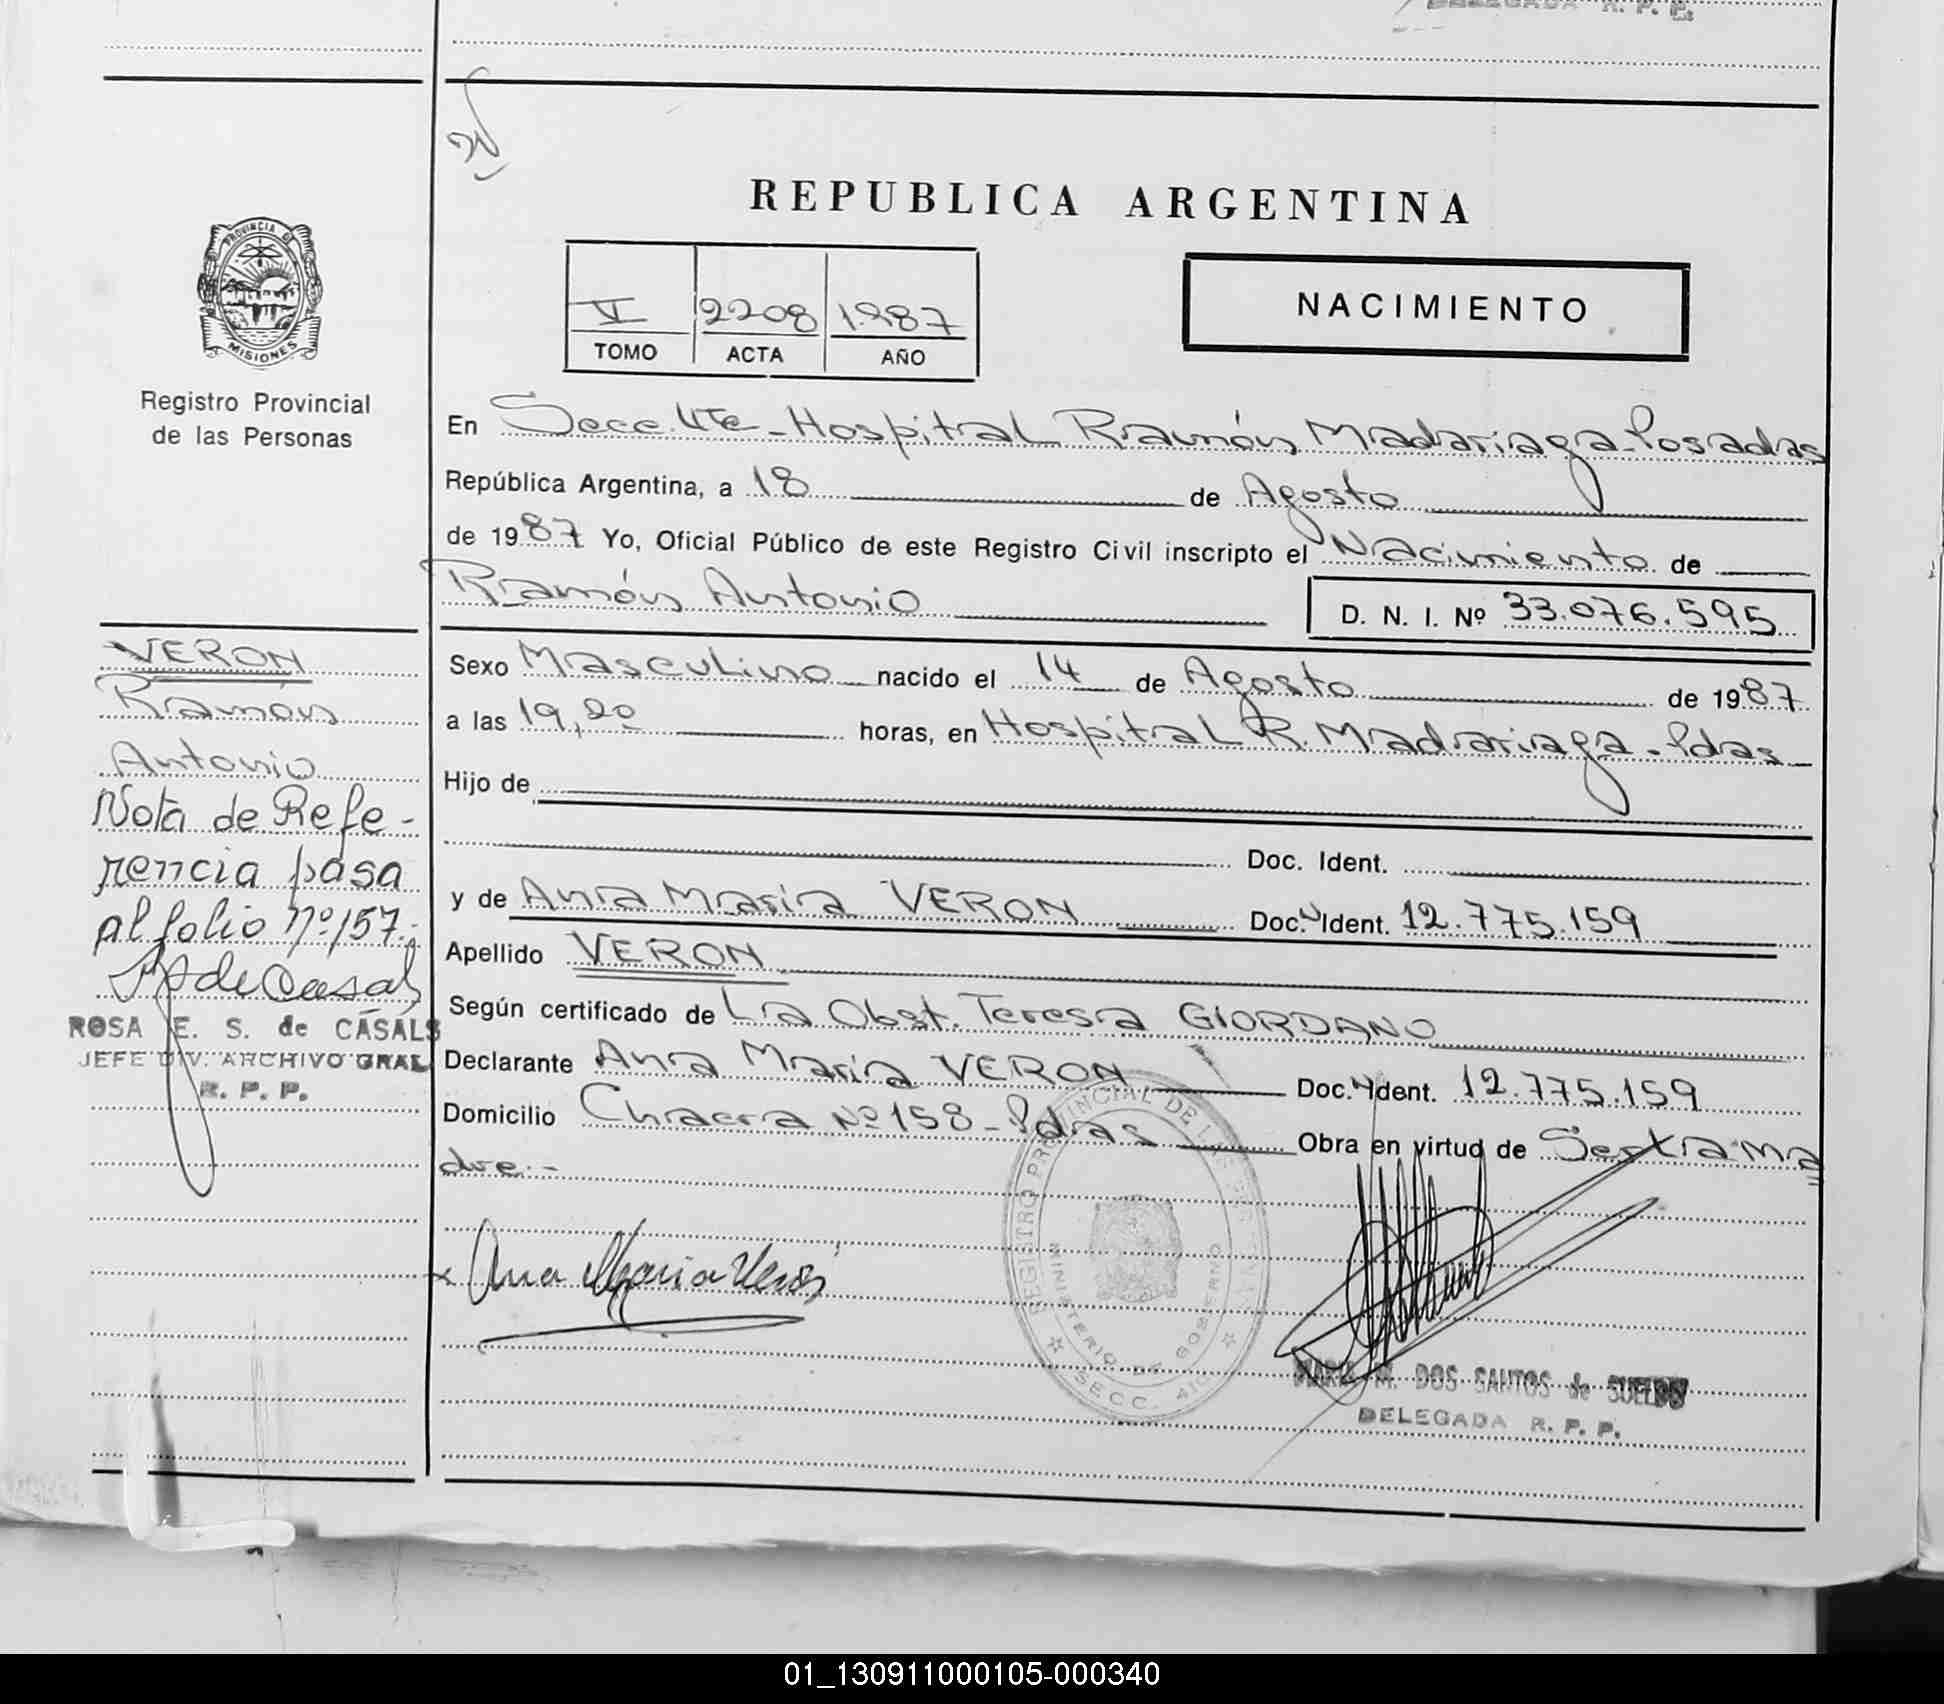 DELEGADA R. P. P.
REPUBLICA ARGENTINA
PROVINCIA DE
MISIONES
Registro Provincial
de las Personas
V 2208 1.987
TOMO ACTA AÑO
NACIMIENTO
En Secc. 4ta - Hospital Ramón Madariaga - Posadas
República Argentina, a 18 de Agosto
de 1987 Yo, Oficial Público de este Registro Civil inscripto el Nacimiento de
Ramón Antonio D. N. I. Nº 33.076.595
Sexo Masculino nacido el 14 de Agosto de 1987
a las 19,20 horas, en Hospital R. Madariaga - Pdas
Hijo de
Doc. Ident.
y de Ana María VERON Doc. Ident. 12.775.159
Apellido VERON
Según certificado de La Obst. Teresa GIORDANO
Declarante Ana María VERON Doc. Ident. 12.775.159
Domicilio Chacra Nº 158 - Pdas Obra en virtud de Ser la ma
dre.-
VERON
Ramón
Antonio
Nota de Refe-
rencia pasa
al folio Nº 157.
ROSA E. S. de CASALS
JEFE DIV. ARCHIVO GRAL
R. P. P.
Ana Maria Veron
REGISTRO PROVINCIAL DE LAS PERSONAS
MINISTERIO DE GOBIERNO
SECC. 4ta
MARIA M. DOS SANTOS de SUELDO
DELEGADA R. P. P.
01_130911000105-000340